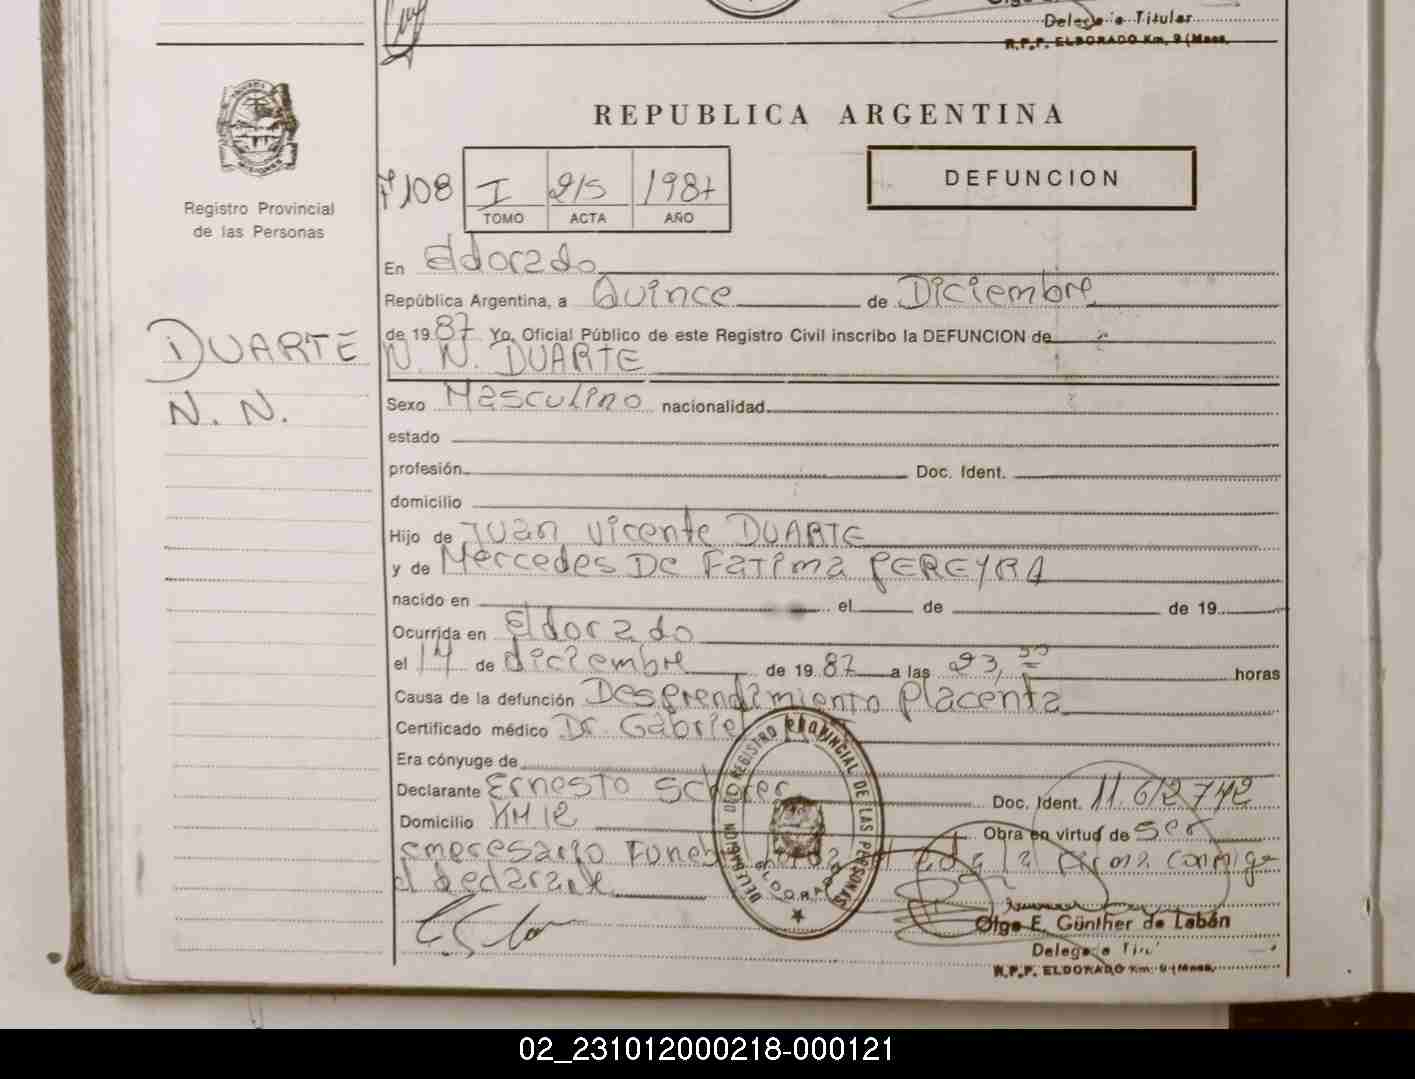 Delegada Titular
R.P.P. ELDORADO Km. 9 (Mnes.
REPUBLICA ARGENTINA
DEFUNCION
Fº 108 I 215 1987
TOMO ACTA AÑO
Registro Provincial
de las Personas
En Eldorado
República Argentina, a Quince de Diciembre
de 1987 Yo, Oficial Público de este Registro Civil inscribo la DEFUNCION de
N. N. DUARTE
DUARTE
N. N.
Sexo Masculino nacionalidad
estado
profesión Doc. Ident.
domicilio
Hijo de Juan Vicente DUARTE
y de Mercedes De Fatima PEREYRA
nacido en el de de 19
Ocurrida en Eldorado
el 14 de diciembre de 1987 a las 23, horas
Causa de la defunción Desprendimiento Placenta
Certificado médico Dr. Gabriel
Era cónyuge de
Declarante Ernesto Doc. Ident. 11.612.742
Domicilio KM 12 Obra en virtud de ser
emeresario Leída la firma conmigo
el declarante
DELEGACION DEL REGISTRO PROVINCIAL DE LAS PERSONAS
ELDORADO
Olga E. Günther de Labán
Delegada Tit
R.P.P. ELDORADO Km. 9 (Mnes.
02_231012000218-000121